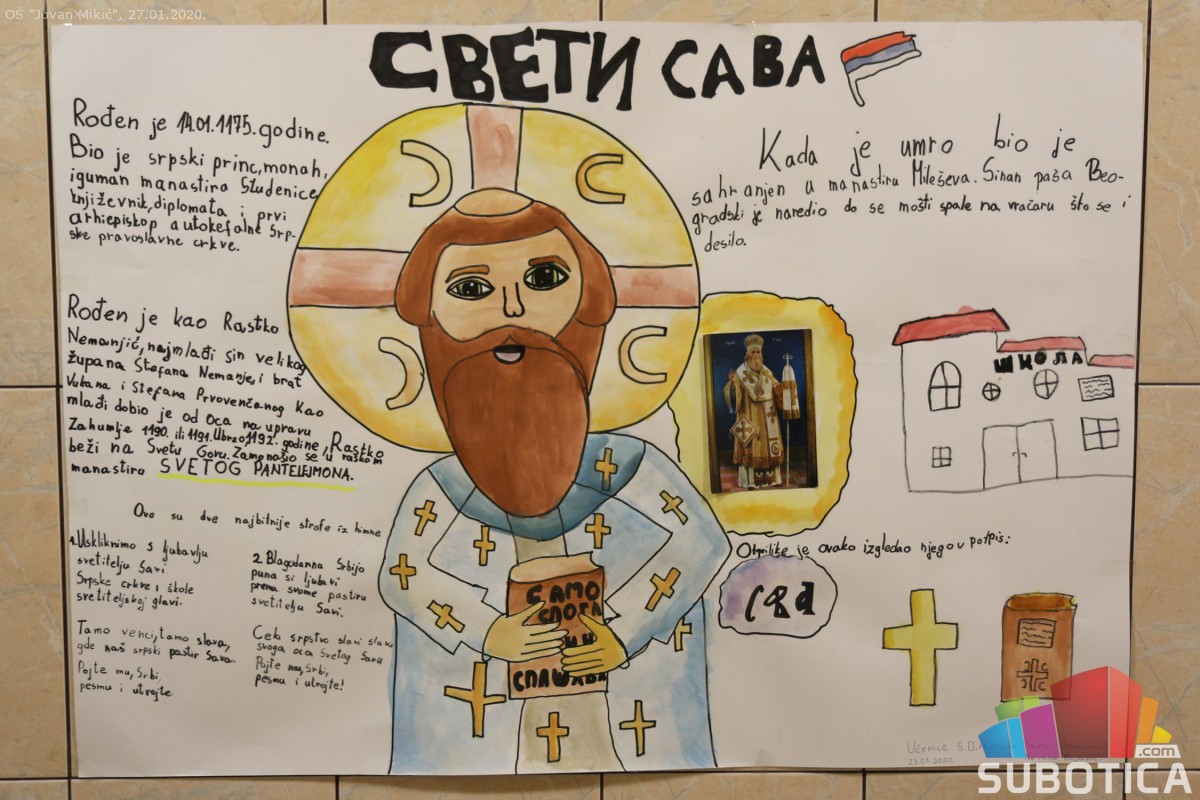 OŠ "Jovan Mikić", 27.01.2020.
СВЕТИ САВА
Rođen je 14.01.1175. godine.
Bio je srpski princ, monah,
iguman manastira Studenice
književnik, diplomata i prvi
arhiepiskop autokefalne Srp-
ske pravoslavne crkve.
Rođen je kao Rastko
Nemanjić, najmlađi sin velikog
župana Stefana Nemanje, i brat
Vukana i Stefana Prvovenčanog Kao
mlađi dobio je od oca na upravu
Zahumlje 1190. ili 1191. Ubrzo 1192. godine, Rastko
beži na Svetu Goru. Zamonašio se u ruskom
manastiru SVETOG PANTELEJMONA.
Ovo su dve najbitnije strofe iz himne
1. Uskliknimo s ljubavlju
svetitelju Savi
Srpske crkve i škole
svetiteljskoj glavi.
Tamo venci, tamo slava,
gde naš srpski pastir Sava.
Pojte mu, Srbi,
pesmu i utrojte
2. Blagodarna Srbijo
puna si ljubavi
prema svome pastiru
svetitelju Savi.
Celo srpstvo slavi slavu
svoga oca Svetog Savu
Pojte mu, Srbi,
pesmu i utrojte!
САМО
СЛОГА
СПАШАВА
Kada je umro bio je
sahranjen u manastiru Mileševa. Sinan paša Beo-
gradski je naredio do se mošti spale na vračaru što se i
desilo.
ШКОЛА
Otprilike je ovako izgledao njegov potpis:
Učenice 5.D.
23.01.2020.
.com
SUBOTICA